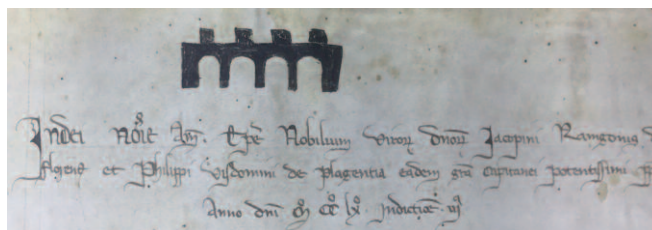 In dei noīe Am̄. Tp̄e Nobilium virorꝝ dn̄orꝝ Jacopini Rangonus
florenē et Philippi visdomini de plagentia eadem gr̄a Capitanei potentissimi
Anno dn̄i mͦ ccͦ lxͦ. Indictiōe. iij